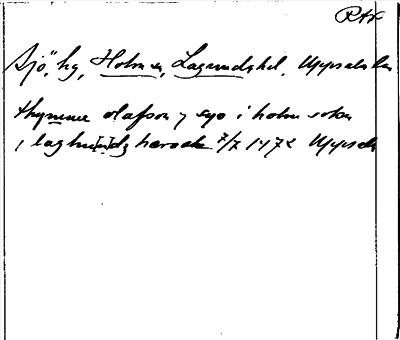 RAP
Sjö, hg, Holm sn, Lagundahd. Uppsala län
thynne olafson j syo i holm sokn
i laghundz hærade 7/7 1472 Uppsala